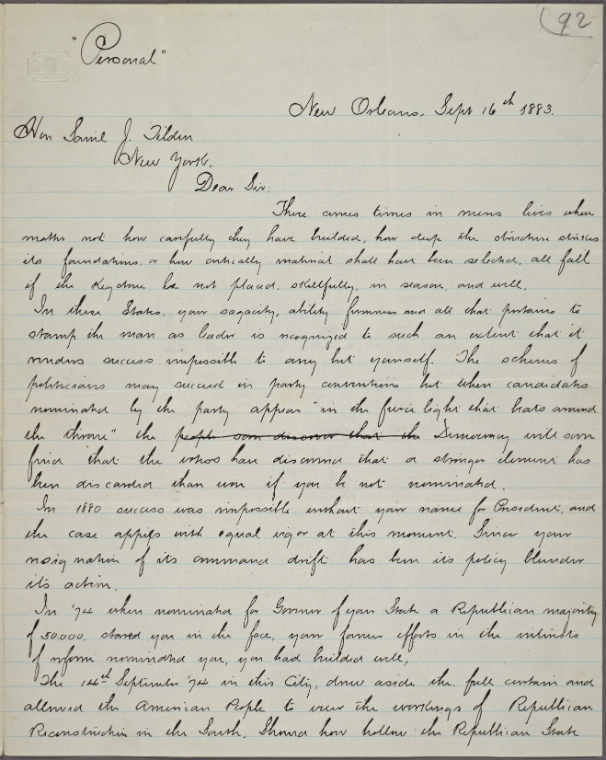 92
"Personal"
New Orleans, Sept 16th 1883.
Hon Saml J. Tilden
New York.
Dear Sir:
There comes times in mens lives when
matter not how carefully they have builded, how deep the structure
its foundations, or how critically material shall have been selected, all fall
if the Keystone be not placed, skillfully, in season, and well.
In these States, your sagacity, ability firmness and all that pertains to
stamp the man as leader is recognized to such an extent that it
renders success impossible to any but yourself. The schemes of
politicians may succeed in party conventions but when candidates
nominated by the party appear "in the fierce light that beats around
the throne" the people soon discover that the Democracy will soon
find that the voters have discerned that a stronger element has
been discarded than won if you be not nominated.
In 1880 success was impossible without your name for President, and
the case applies with equal vigor at this moment. Since your
resignation of its command drift has been its policy blunder
its action.
In '74 when nominated for Governor of your State a Republican majority
of 50.000. stared you in the face, your former efforts in the interests
of reform nominated you, you had builded well.
The 14th September '74 in this City, drew aside the full curtain and
allowed the American People to view the workings of Republican
Reconstruction in the South. Showed how hollow the Republican State